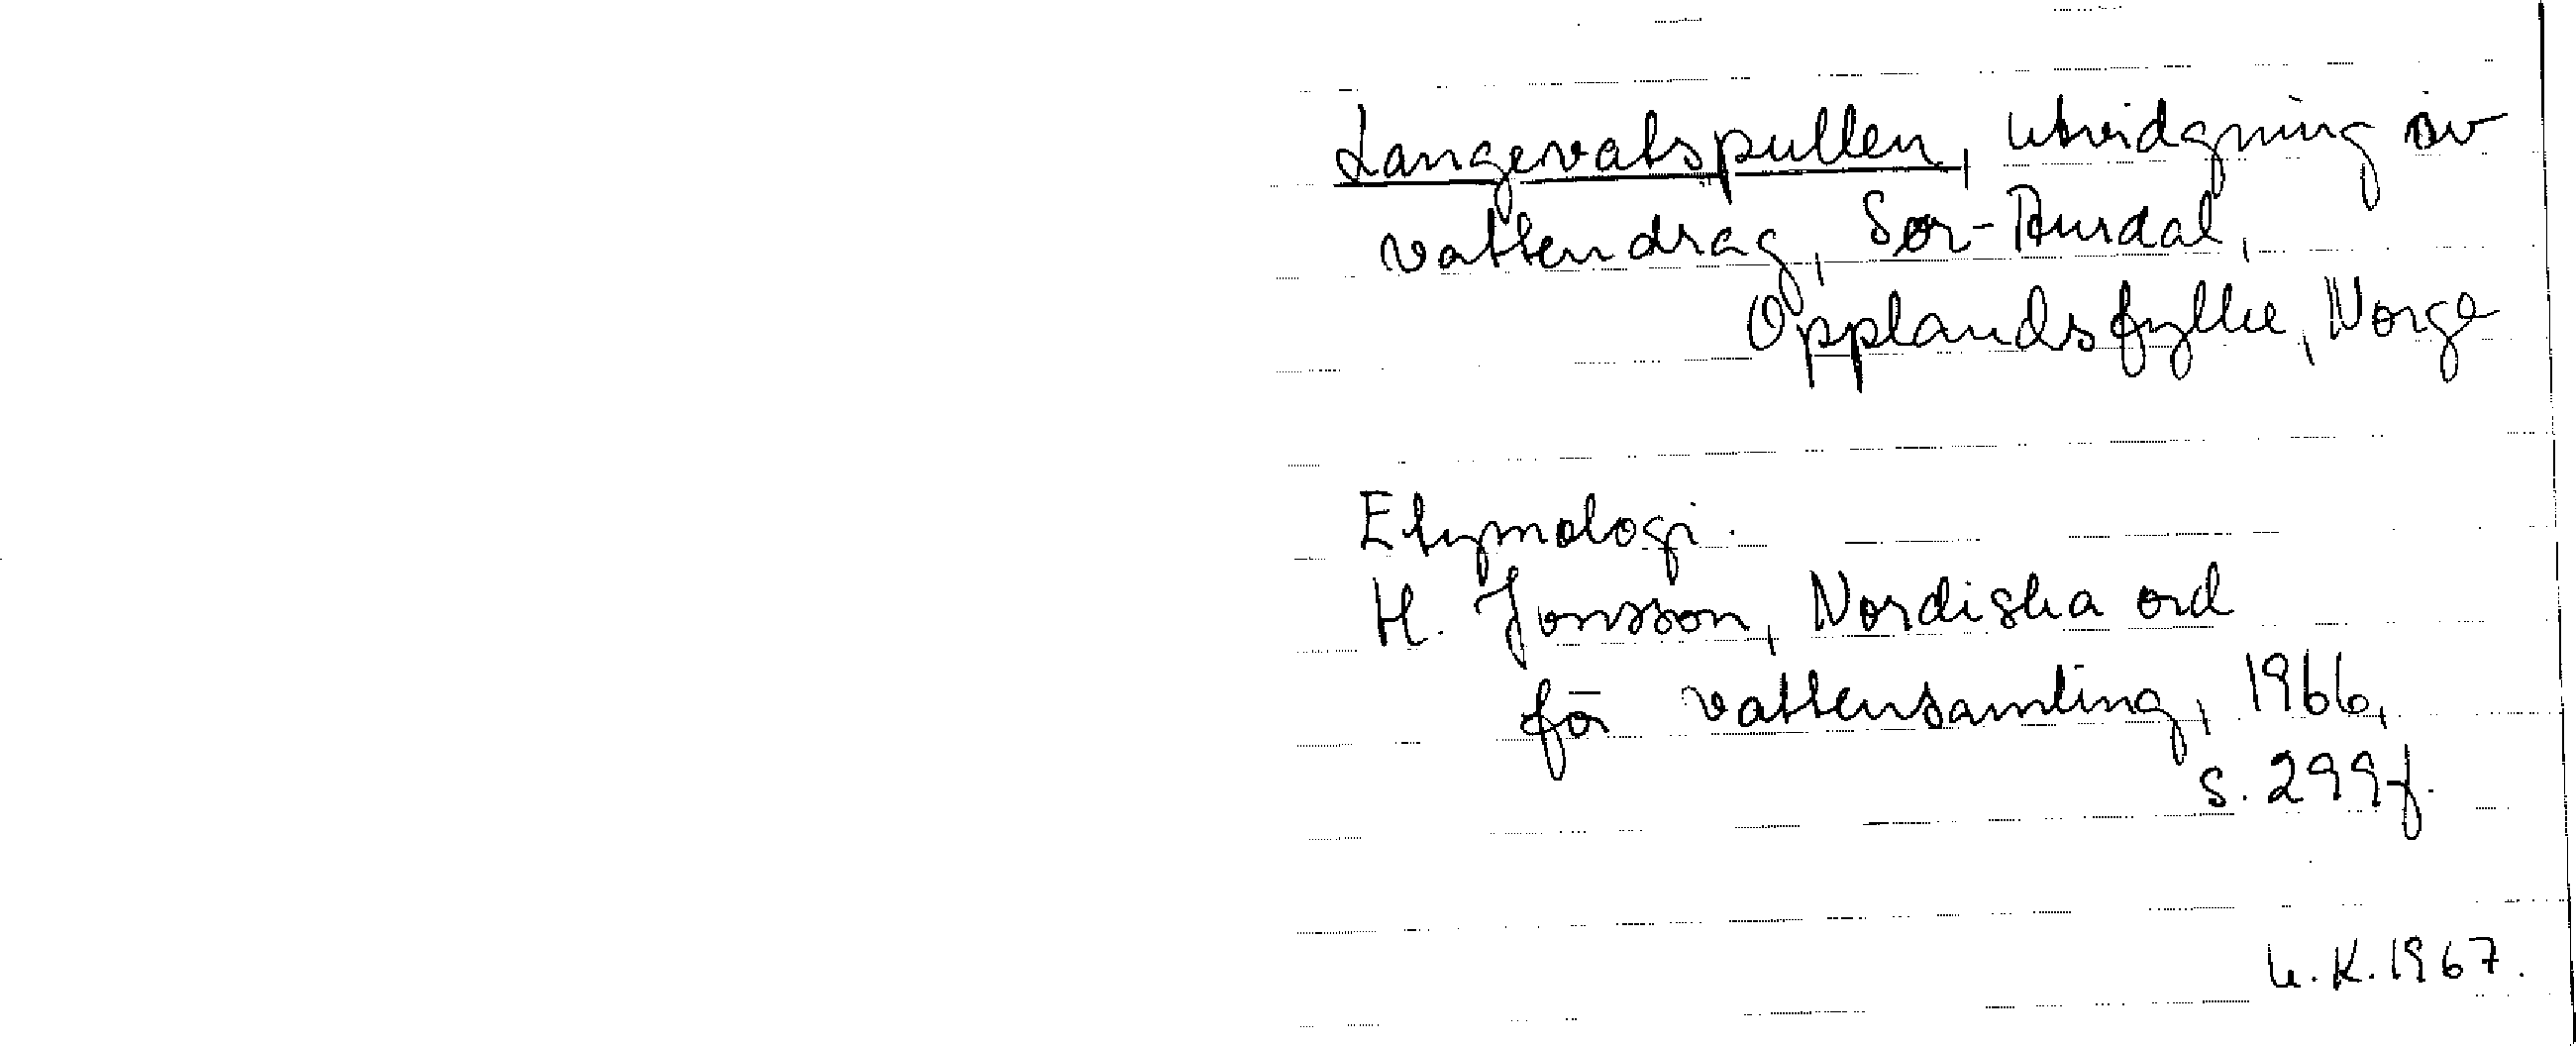 Langevatspullen, utvidgning av
vattendrag, Sør-Aurdal,
Opplandsfylke, Norge
Etymologi.
H. Jonsson, Nordiska ord
för vattensamling, 1966,
s. 299f.
U.K. 1967.